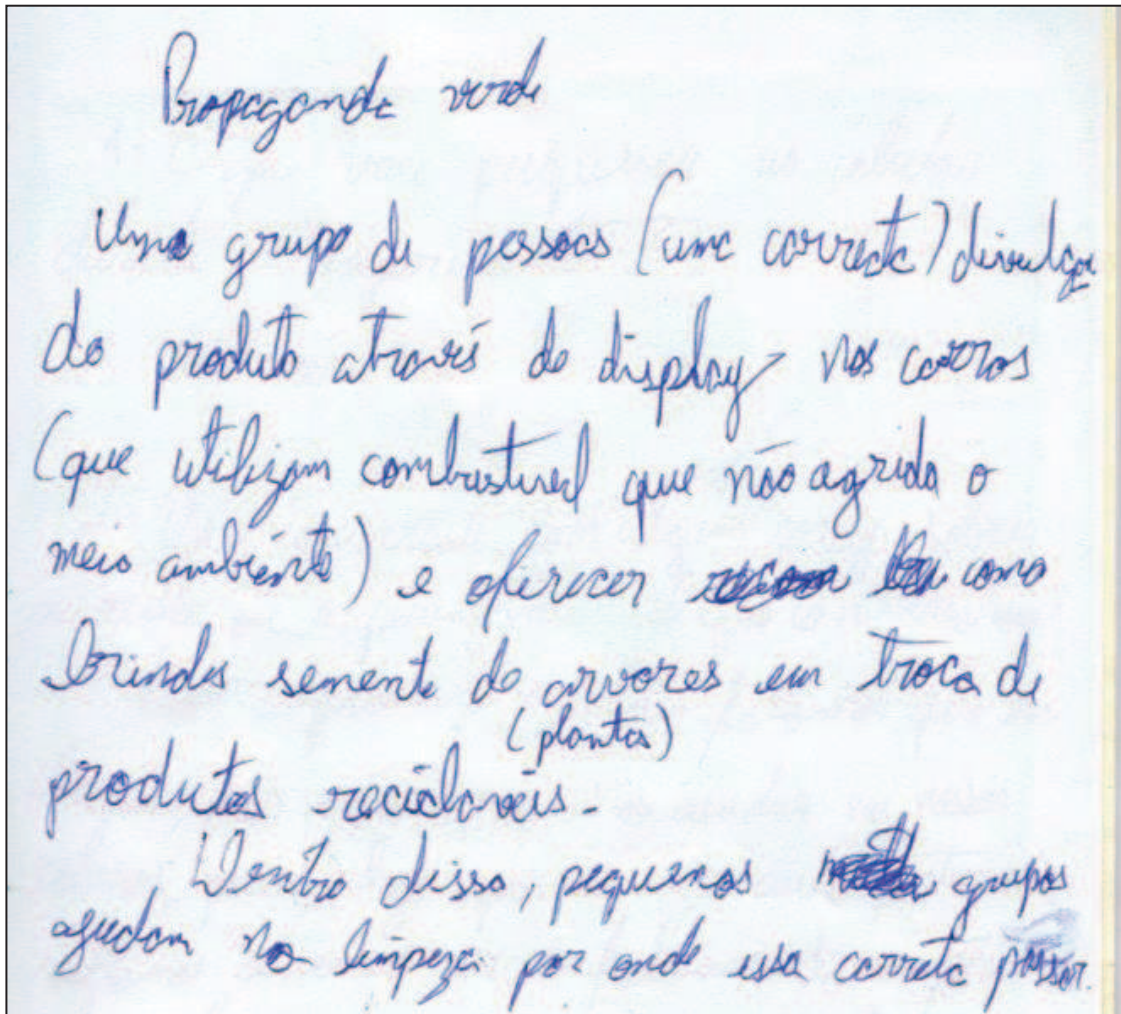 Propaganda verde
Uma grupo de pessoas (uma carreata) divulgar
do produto através do display nos carros
(que utilizam combustivel que não agrida o
meio ambiente) e oferecer como
brindes semente de arvores em troca de
(plantas)
produtos recicláveis.
Dentro disso, pequenos grupos
ajudam na limpeza por onde essa carreta passar.